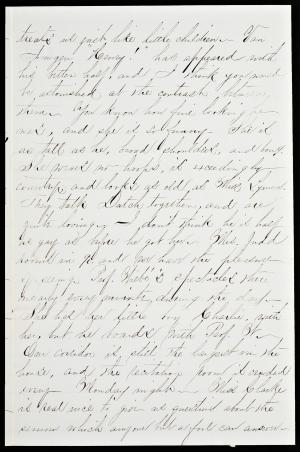 treats us just like little children. Van
"Henry!" has appeared with
his better half, and I think you would
be astonished at the contrast between
them. You know how fine looking he
was, and she is so funny. She is
as tall as he, broad shouldered, and bony.
She wears no hoops, is exceedingly
and looks as old as Miss Lyman.
They talk Dutch together, and are
quite loving, — I don't think he is half
as gay as before he got her. Miss. Judd
rooms in and we have the pleasure
of seeing Prof. spectacles there
nearly every minute during the day.
She had her little boy Charlie, with
her, but he boards with Prof. W.
Our corridor is still the largest in the
house, and the recitation room is crowded
every Monday night. Miss Clarke
is real nice to you as questions about the
sermon which anyone but a fool can answer.